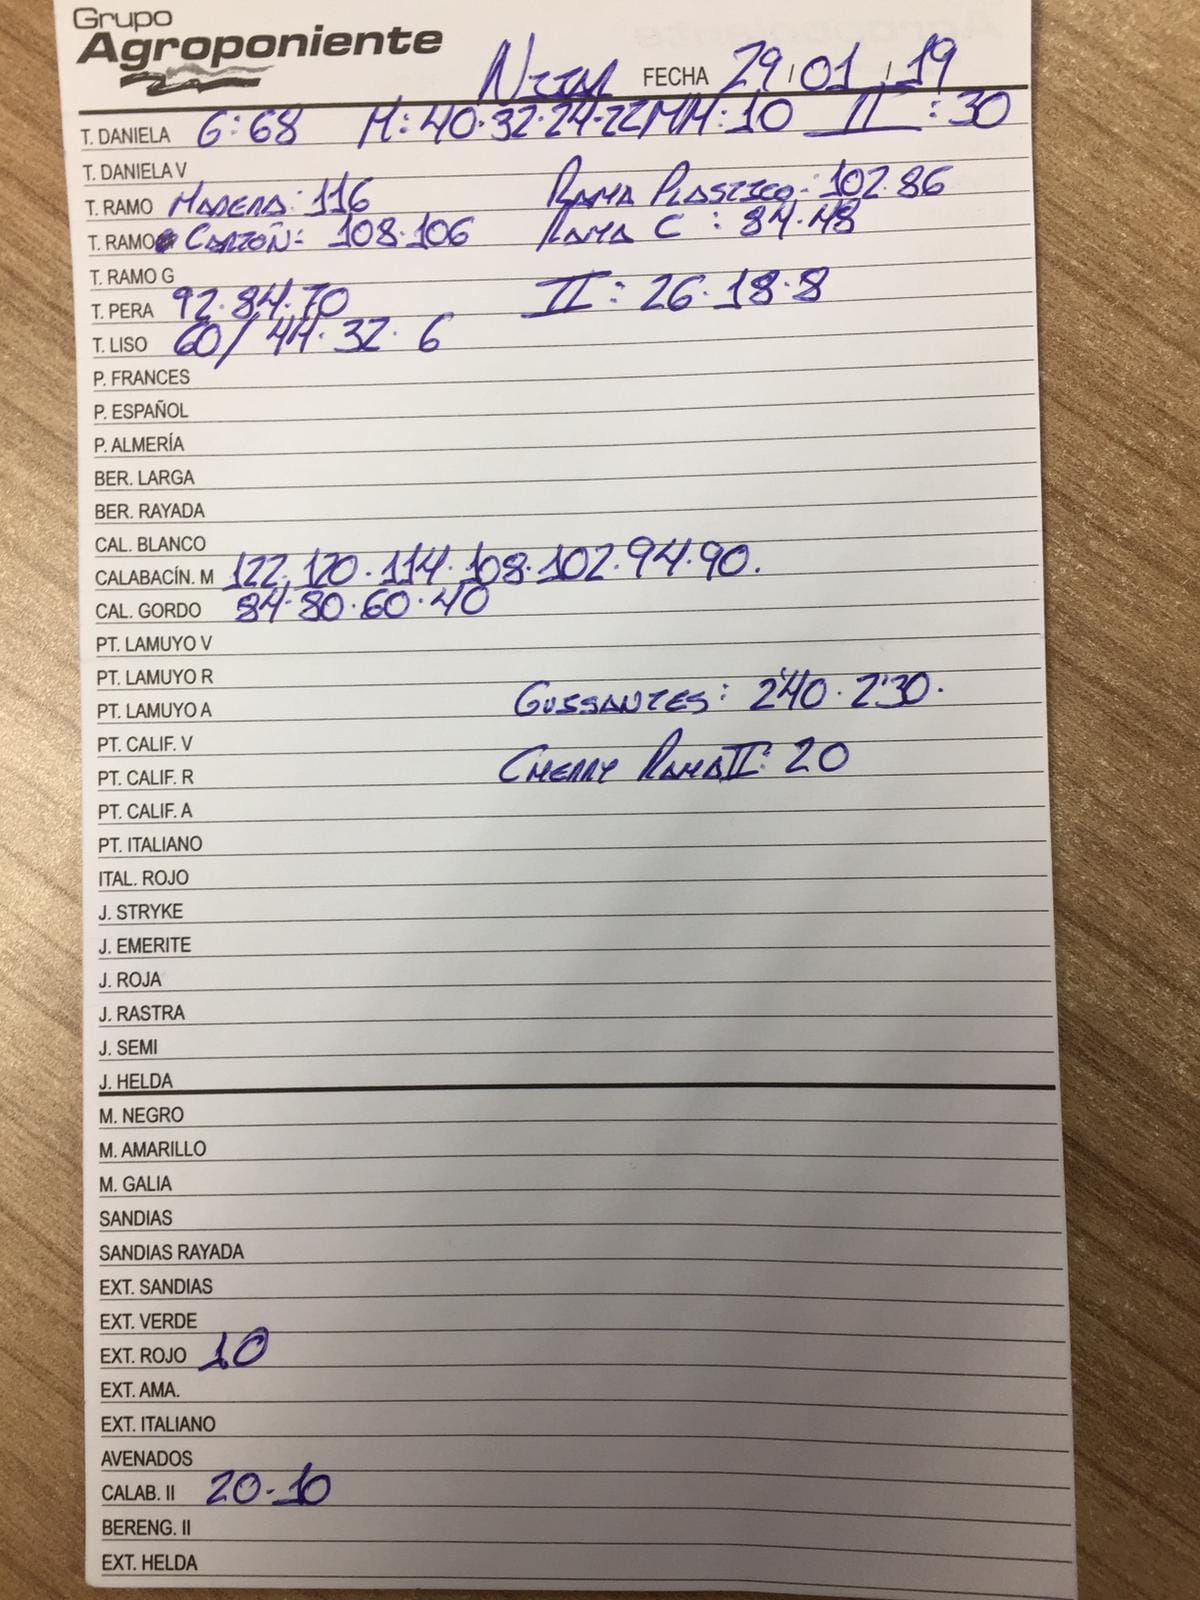 Grupo
Agroponiente
Nijar FECHA 29/01/19
T. DANIELA G:68 M:40·32·24·22 MM:10 II:30
T. DANIELA V
T. RAMO MADERA: 116 RAMA PLASTICO: 102·86
T. RAMO CARTÓN: 108·106 RAMA C : 84·48
T. RAMO G
T. PERA 92·84·70 II: 26·18·8
T. LISO 60/44·32·6
P. FRANCES
P. ESPAÑOL
P. ALMERÍA
BER. LARGA
BER. RAYADA
CAL. BLANCO
CALABACÍN. M 122·120·114·108·102·94·90.
CAL. GORDO 84·80·60·40
PT. LAMUYO V
PT. LAMUYO R
PT. LAMUYO A GUISANTES: 2'40·2'30.
PT. CALIF. V
PT. CALIF. R CHERRY RAMA II: 20
PT. CALIF. A
PT. ITALIANO
ITAL. ROJO
J. STRYKE
J. EMERITE
J. ROJA
J. RASTRA
J. SEMI
J. HELDA
M. NEGRO
M. AMARILLO
M. GALIA
SANDIAS
SANDIAS RAYADA
EXT. SANDIAS
EXT. VERDE
EXT. ROJO 10
EXT. AMA.
EXT. ITALIANO
AVENADOS
CALAB. II 20·10
BERENG. II
EXT. HELDA